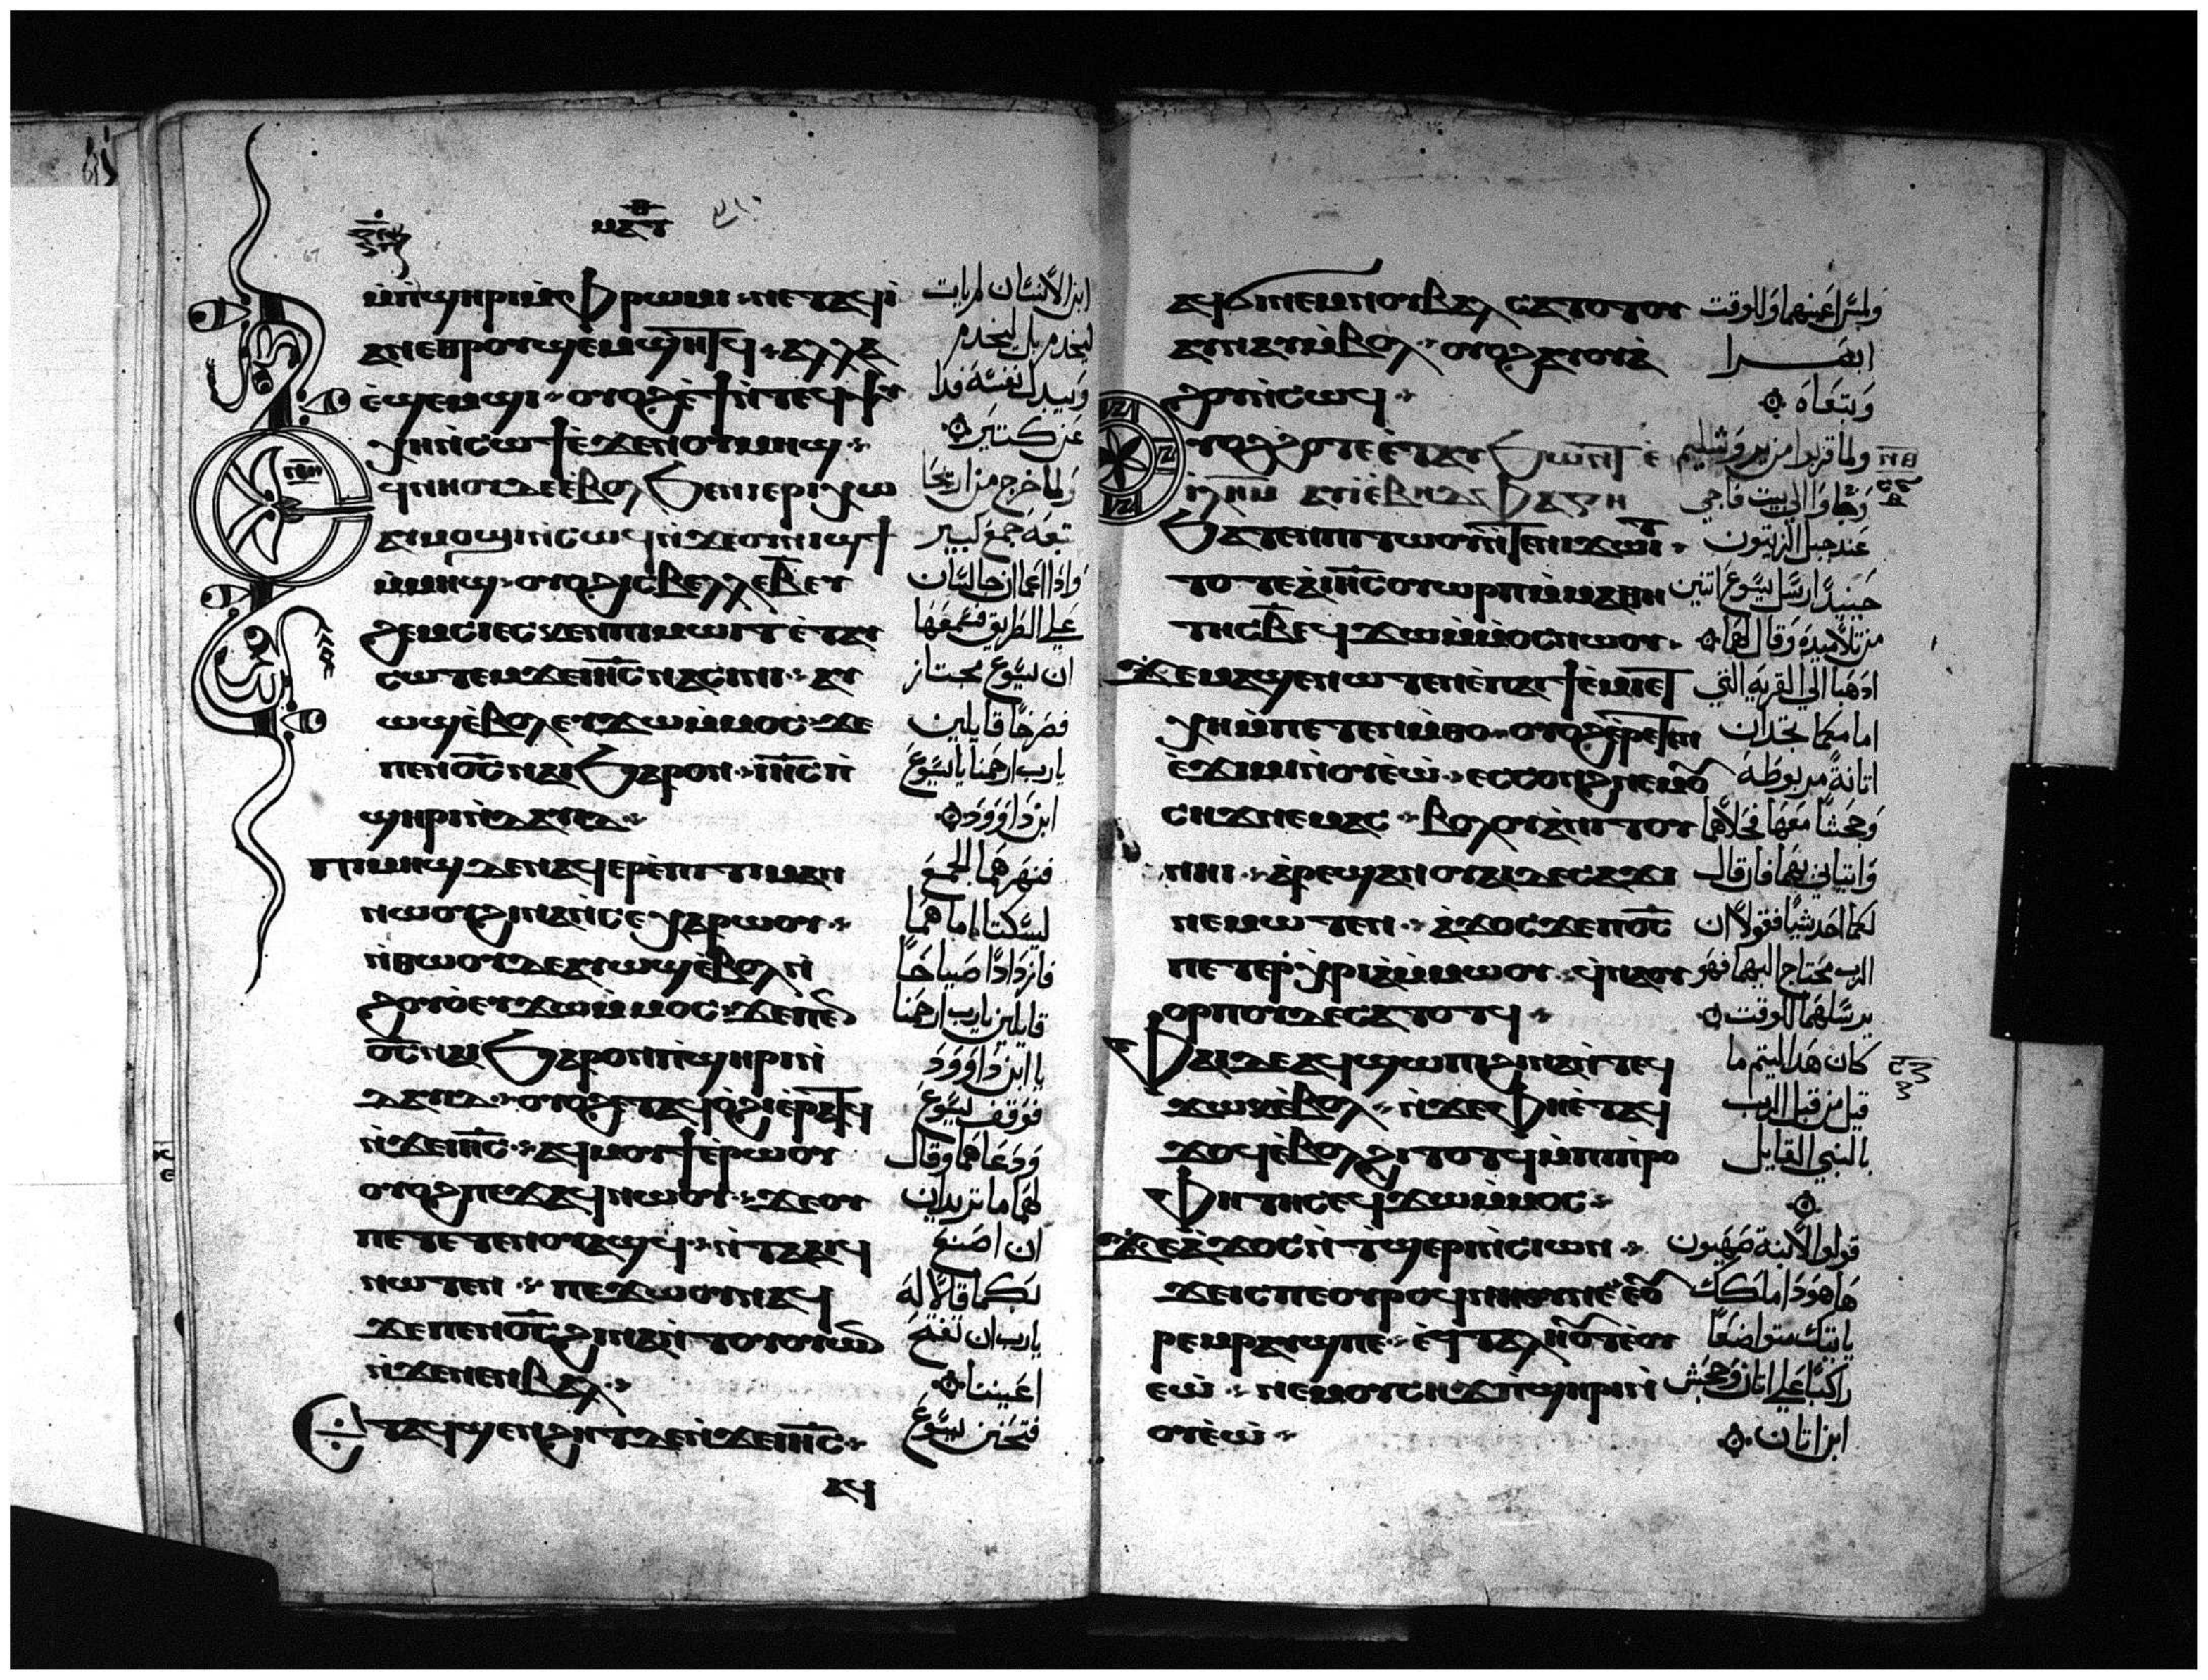 ⲙⲁⲧ
ⲙ̀ⲡ̀ϣⲏⲣⲓⲙ̀ⲫⲣⲱⲙⲓ ⁘ ⲛⲉⲧⲁϥⲓ̀
ⲁⲛⲉⲑⲣⲟⲩϣⲉⲙϣⲏⲧϥ ⁘ ⲁⲗⲗⲁ
ⲉ̀ϣⲉⲙϣⲓ ⁘ ⲟⲩⲟϩⲉ̀ϯⲛ̀ⲧⲉϥⲯⲩ
ⲭⲏⲛ̀ⲥⲱϯⲉ̀ϫⲉⲛⲟⲩⲙⲏϣ ⁘
ⲉϥⲛⲏⲟⲩⲇⲉⲉ̀ⲃⲟⲗϧⲉⲛⲓⲉⲣⲓⲭⲱ
ⲁⲩⲙⲟϣⲓⲛ̀ⲥⲱϥⲛ̀ϫⲉⲟⲩⲛⲓϣϯ
ⲙ̀ⲙⲏϣ ⁘ ⲟⲩⲟϩⲓⲥⲃⲉⲗⲗⲉⲃ̅ⲉⲩ
ϩⲉⲙⲥⲓⲉⲥⲕⲉⲛⲡⲓⲙⲱⲓⲧⲉ̀ⲧⲁⲩ
ⲥⲱⲧⲉⲙϫⲉⲓⲏ̅ⲥ̅ⲛⲁⲥⲓⲛⲓ ⁘ ⲁⲩ
ⲱϣⲉ̀ⲃⲟⲗⲉⲩϫⲱⲙ̀ⲙⲟⲥ ⁘ ϫⲉ
ⲡⲉⲛⲟ̅ⲥ̅ⲛⲁⲓϧⲁⲣⲟⲛ ⁘ ⲓⲏ̅ⲥ̅ⲡ̀
ϣⲏⲣⲓⲛ̀ⲇⲁⲩⲓⲇ ⁘
ⲡⲓⲙⲏϣⲇⲉⲛⲁϥⲉⲣⲉ̀ⲡⲓⲧⲓⲙⲁⲛ
ⲛⲱⲟⲩϩⲓⲛⲁⲛ̀ⲥⲉⲭⲁⲣⲱⲟⲩ ⁘
ⲛ̀ⲑⲱⲟⲩⲇⲉⲁⲩⲱϣⲉ̀ⲃⲟⲗⲛ̀
ϩⲟⲩⲟ̀ⲉⲩϫⲱⲙ̀ⲙⲟⲥ ⁘ ϫⲉⲡⲉⲛ
ⲟ̅ⲥ̅ⲛⲁⲓϧⲁⲣⲟⲛⲡ̀ϣⲏⲣⲓⲛ̀
ⲇⲁⲩⲓⲇ ⁘ ⲟⲩⲟϩⲉⲧⲁϥⲟ̀ϩⲓⲉ̀ⲣⲁⲧϥ
ⲛ̀ϫⲉⲓⲏ̅ⲥ̅ ⁘ ⲁϥⲙⲟⲩϯⲉ̀ⲣⲱⲟⲩ
ⲟⲩⲟϩⲡⲉϫⲁϥⲛⲱⲟⲩ ⁘ ϫⲉⲟⲩ
ⲡⲉⲧⲉⲧⲉⲛⲟⲩⲁϣϥ ⁘ ⲛ̀ⲧⲁⲁⲓϥ
ⲛⲱⲧⲉⲛ ⁘ ⲡⲉϫⲱⲟⲩⲛⲁϥ
ϫⲉⲡⲉⲛⲟ̅ⲥ̅ϩⲓⲛⲁⲛ̀ⲧⲟⲩⲟⲩⲱⲛ
ⲛ̀ϫⲉⲛⲉⲛⲃⲁⲗ ⁘
ⲉⲧⲁϥϣⲉⲛϩⲏⲧⲇⲉⲛ̀ϫⲉⲓⲏ̅ⲥ̅ ⁘
ⲁϥ
ابن الانسان لم يات
ليخدم بل ليخدم
ويبدل نفسه فدا
عن كتير
ولما خرج من اريحا
تبعه جمع كبير
واذا اعمان جالسان
علي الطريق فسمعها
ان يسوع مجتاز
فصرخا قايلين
يارب ارحمنا يا يسوع
ابن داوود
فنهرهما الجمع
ليسكتا اما هما
فازدادا صياحا
قايلين يارب ارحمنا
يا ابن داوود
فوقف يسوع
ودعاهما وقال
لهما ما تريدان
ان اصنع
لكما قالا له
يارب ان تفتح
اعيننا
فتحنن يسوع
ⲁϥϭⲓⲛⲉⲙⲛⲟⲩⲃⲁⲗ ⲥⲁⲧⲟⲧⲟⲩ
ⲁⲩⲛⲁⲩⲙ̀ⲃⲟⲗ ⁘ ⲟⲩⲟϩⲁⲩⲟⲩⲁ
ϩⲟⲩⲛ̀ⲥⲱϥ ⁘
ⲟⲩⲟϩϩⲟⲧⲉⲉ̀ⲧⲁⲩϧⲱⲛⲧⲉ̀
ⲓ̅ⲗ̅ⲏ̅ⲙ̅ ⲁⲩⲓ̀ⲉ̀ⲃⲏⲑⲫⲁⲅⲏ
ϧⲁⲧⲉⲛⲡⲓⲧⲱⲟⲩⲛ̀ⲧⲉⲛⲓϫⲱⲓⲧ ⁘
ⲧⲟⲧⲉⲁ̀ⲓⲏ̅ⲥ̅ⲟⲩⲱⲣⲡⲙ̀ⲙⲁⲑⲏ
ⲧⲏⲥⲃ̅ⲉϥϫⲱⲙ̀ⲙⲟⲥⲛⲱⲟⲩ ⁘
ϫⲉⲙⲁϣⲉⲛⲱⲧⲉⲛⲉ̀ⲡⲁⲓϯⲙⲓⲉⲧ
ⲭⲏⲙ̀ⲡⲉⲧⲉⲛⲙ̀ⲑⲟ ⁘ ⲟⲩⲟϩⲉ̀ⲣⲉⲧⲉⲛ
ⲉ̀ϫⲓⲙⲓⲛ̀ⲟⲩⲉ̀ⲱ ⁘ ⲉⲥⲥⲟⲛϩⲛⲉⲙⲟⲩ
ⲥⲏϫⲛⲉⲙⲁⲥ ⁘ ⲃⲟⲗⲟⲩⲁ̀ⲛⲓⲧⲟⲩ
ⲛⲏⲓ ⁘ ⲁ̀ⲣⲉϣⲁⲛⲟⲩⲁⲓⲇⲉⲥⲁϫⲓ
ⲛⲉⲙⲱⲧⲉⲛ ⁘ ⲁ̀ϫⲟⲥϫⲉⲡⲟ̅ⲥ̅
ⲡⲉⲧⲉⲣⲭⲣⲓⲁ̀ⲙ̀ⲙⲱⲟⲩ ⁘ ϥ̀ⲛⲁⲟⲩ
ⲟⲣⲡⲟⲩⲇⲉⲥⲁⲧⲟⲧϥ ⁘
ⲫⲁⲓⲇⲉⲁϥϣⲱⲡⲓϩⲓⲛⲁⲛ̀ⲧⲉϥ
ϫⲱⲕⲉ̀ⲃⲟⲗ ⁘ ⲛ̀ϫⲉⲫⲏⲉ̀ⲧⲁϥ
ϫⲟϥⲉ̀ⲃⲟⲗϩⲓⲧⲟⲧϥⲙ̀ⲡⲓⲡ̀ⲣⲟ
ⲫⲏⲧⲏⲥⲉϥϫⲱⲙ̀ⲙⲟⲥ ⁘
ϫⲉⲁ̀ϫⲟⲥⲛ̀ⲧ̀ϣⲉⲣⲓⲛ̀ⲥⲓⲱⲛ ⁘
ϫⲉⲓⲥⲡⲉⲟⲩⲣⲟϥⲛⲏⲟⲩⲛⲉ ⲉⲟⲩ
ⲣⲉⲙⲣⲁⲩϣⲡⲉ ⁘ ⲉϥⲧⲁⲗⲏⲟⲩⲧⲉ̀ⲟⲩ
ⲉⲱ̀ ⁘ ⲛⲉⲙⲟⲩⲥⲏϫⲡ̀ϣⲏⲣⲓⲛ̀
ⲟⲩⲉ̀ⲱ̀ ⁘
ولمس اعينهما وللوقت
ابصرا
وتبعاه
ولما قربوا من يروشليم
وجاوا الي بيت فاجي
عند جبل الزيتون
حينيد ارسل يسوع اتنين
من تلاميده وقال لهما
ادهبا الي القريه التي
امامكما تجدان
اتانة مربوطة
وجحشا معها فحلاهما
واتياني بهما فان قال
لكما احد شيا فقولا ان
الرب محتاج اليهما فهو
يرسلهما للوقت
كان هدا ليتم ما
قيل من قبل الرب
بالنبي القايل
قولوا لابنة صهيون
ها هودا ملكك
ياتيك متواضعا
راكبا علي اتان وجحش
ابن اتان